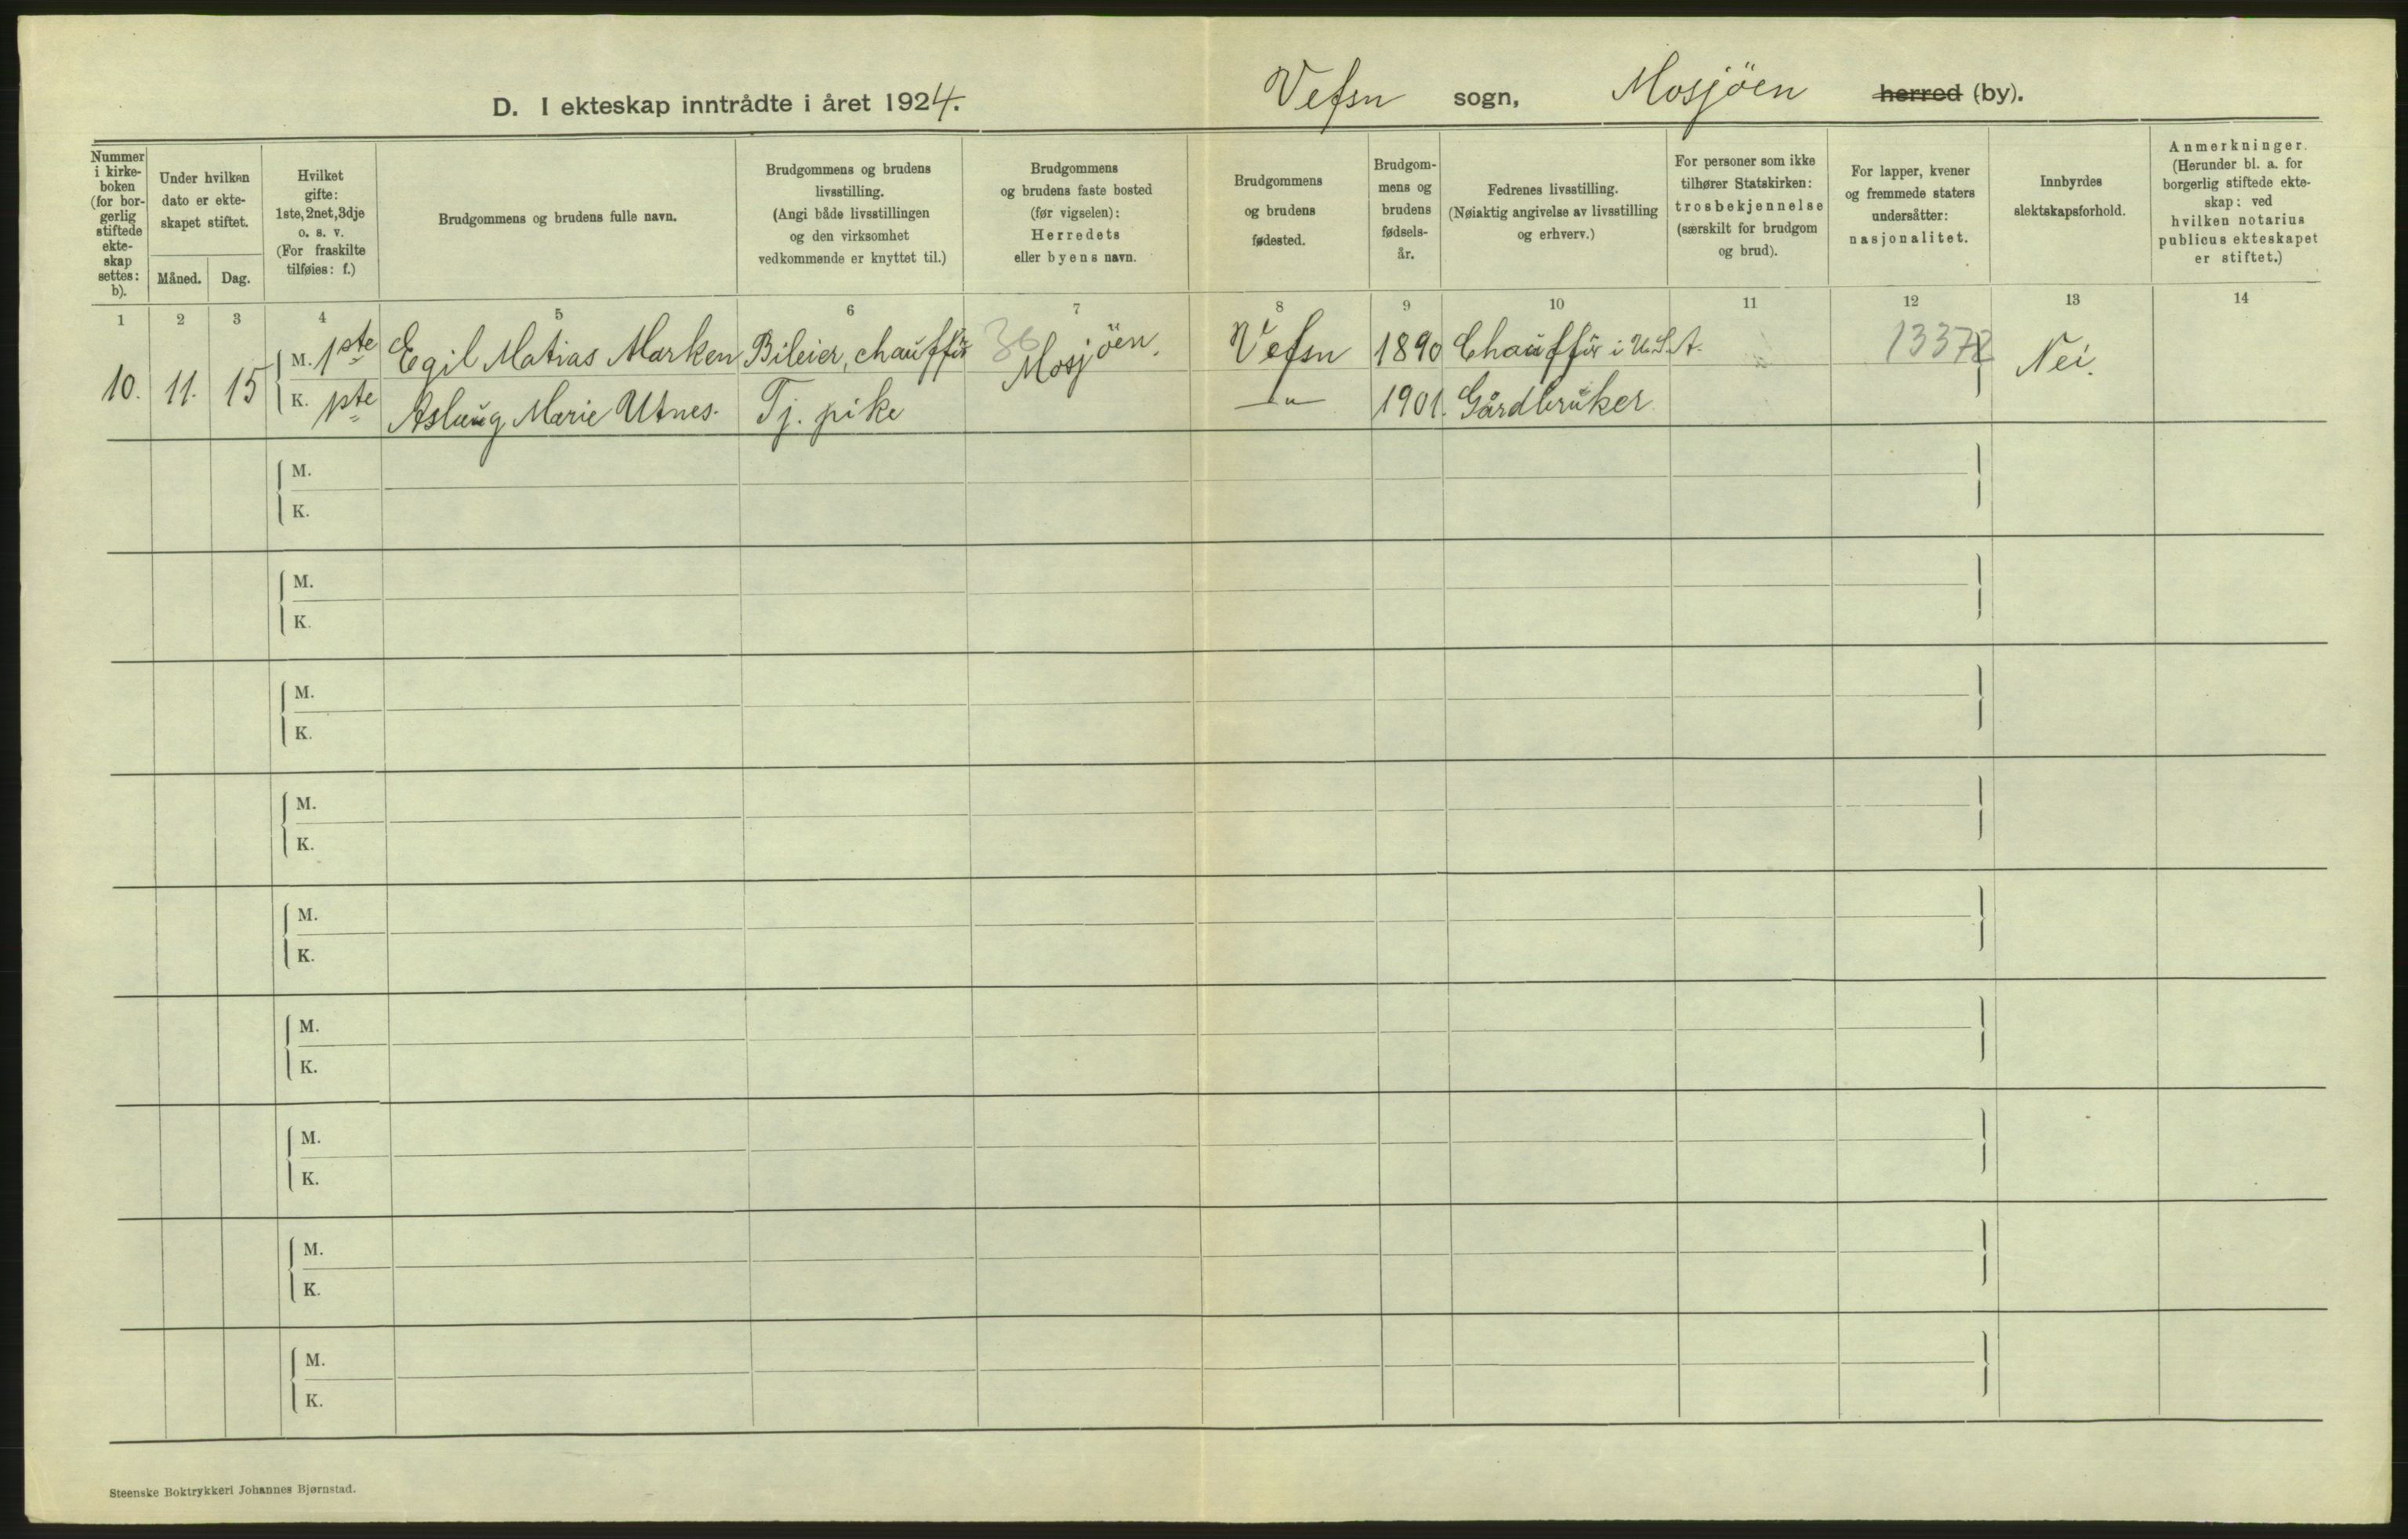 D. I ekteskap inntrådte i året 1924.
Vefsn sogn, Mosjöen herred (by).
Nummer i kirke- boken (for bor- gerlig stiftede ekte- skap settes: b).
Under hvilken dato er ekte- skapet stiftet.
Måned. Dag.
Hvilket gifte: 1ste, 2net, 3dje o. s. v. (For fraskilte tilføies: f.)
Brudgommens og brudens fulle navn.
Brudgommens og brudens livsstilling. (Angi både livsstillingen og den virksomhet vedkommende er knyttet til.)
Brudgommens og brudens faste bosted (før vigselen): Herredets eller byens navn.
Brudgommens og brudens fødested.
Brudgom- mens og brudens fødsels- år.
Fedrenes livsstilling. (Nøiaktig angivelse av livsstilling og erhverv.)
For personer som ikke tilhører Statskirken: trosbekjennelse (særskilt for brudgom og brud).
For lapper, kvener og fremmede staters undersåtter: nasjonalitet.
Innbyrdes slektskapsforhold.
Anmerkninger. (Herunder bl. a. for borgerlig stiftede ekte- skap: ved hvilken notarius publicus ekteskapet er stiftet.)
1 2 3 4 5 6 7 8 9 10 11 12 13 14
10. 11. 15 M. 1ste Egil Matias Marken Bileier, chauffür 36 Mosjöen. Vefsn 1890 Chauffür i U.S.A. 13372 Nei.
K. 1ste Aslaug Marie Utnes. Tj. pike —"— 1901. Gårdbruker
M.
K.
M.
K.
M.
K.
M.
K.
M.
K.
M.
K.
M.
K.
M.
K.
M.
K.
Steenske Boktrykkeri Johannes Bjørnstad.